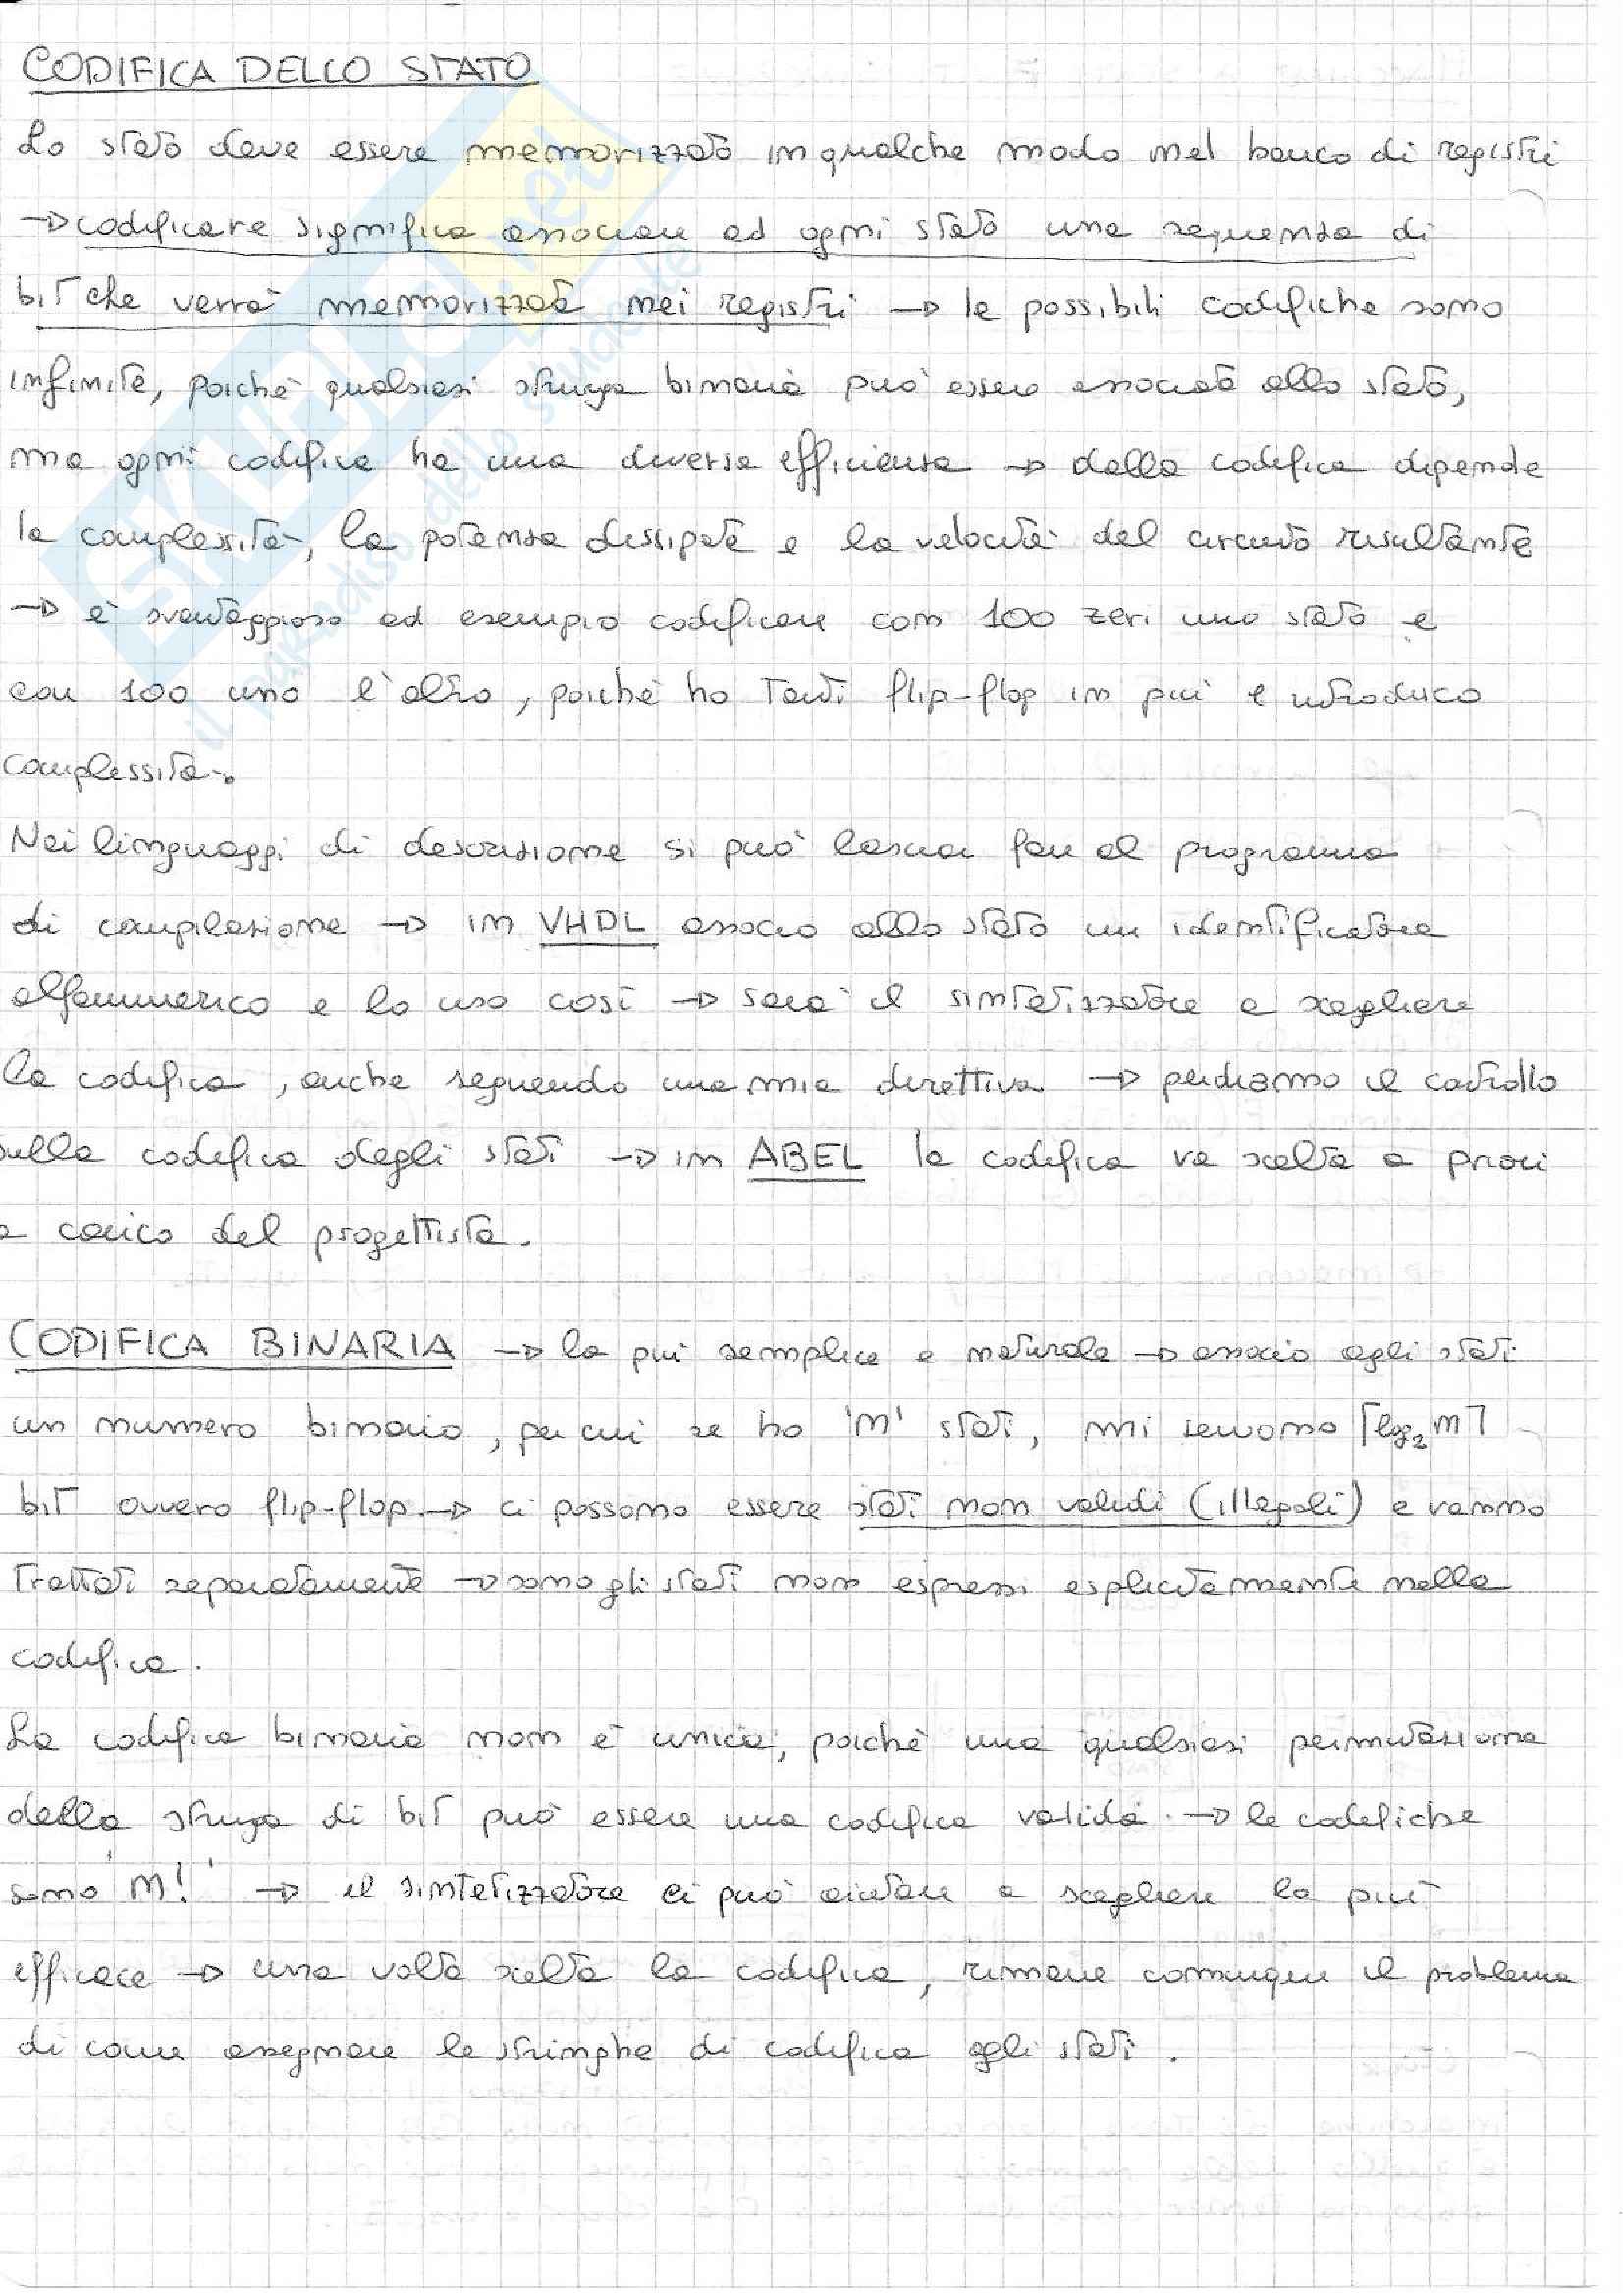 CODIFICA DELLO STATO
Lo stato deve essere memorizzato in qualche modo nel banco di registri
→ codificare significa associare ad ogni stato una sequenza di
bit che verrà memorizzata nei registri → le possibili codifiche sono
infinite, poichè qualsiasi stringa binaria può essere associata allo stato,
ma ogni codifica ha una diversa efficienza → dalla codifica dipende
la complessità, la potenza dissipata e la velocità del circuito risultante
→ è svantaggioso ad esempio codificare con 100 zeri uno stato e
con 100 uno l'altro, poichè ho tanti flip-flop in più e introduco
complessità.
Nei linguaggi di descrizione si può lasciar fare al programma
di compilazione → in VHDL associo allo stato un identificatore
alfanumerico e lo uso così → sarà il sintetizzatore a scegliere
la codifica, anche seguendo una mia direttiva → perdiamo il controllo
sulla codifica degli stati → in ABEL la codifica va scelta a priori
a carico del progettista.
CODIFICA BINARIA → la più semplice e naturale → associo agli stati
un numero binario, per cui se ho 'm' stati, mi servono ⌈log₂ m⌉
bit ovvero flip-flop. → ci possono essere stati non validi (illegali) e vanno
trattati separatamente → sono gli stati non espressi esplicitamente nella
codifica.
La codifica binaria non è unica, poichè una qualsiasi permutazione
della stringa di bit può essere una codifica valida. → le codifiche
sono 'm!' → il sintetizzatore ci può aiutare a scegliere la più
efficace → una volta scelta la codifica, rimane comunque il problema
di come assegnare le stringhe di codifica agli stati.
SKUOLA.net
il paradiso dello studente